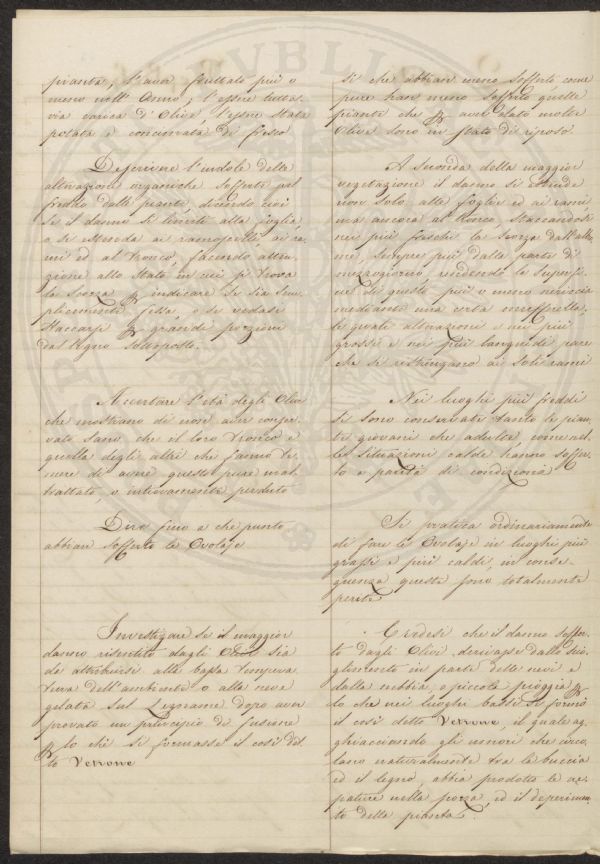 pianta; l'aver fruttato più o
meno nell'Anno; l'essere tutta-
via carica d'Olive, l'essere stata
potata e concimata di fresco
Descrivere l'indole delle
alterazioni organiche sofferte pel
freddo dalle piante, dicendo cioè
se il danno si limiti alla foglia,
o si estenda ai ramoscelli, ai ra-
mi ed al tronco, facendo atten-
zione allo stato in cui si trova
la scorza p indicare se sia sem-
plicemente fessa, o se vedasi
staccarsi p grandi porzioni
dal legno sottoposto.
Accertare l'età degli Olivi
che mostrano di non aver conser-
vato sano che il loro tronco e
quella degli altri che fanno te-
mere di avere questo pure mal-
trattato, o intieramente perduto
Dire fino a che punto
abbian sofferto le Ovolaje
Investigare se il maggior
danno risentito dagli Olivi sia
da attribuirsi alla bassa tempera-
tura dell'ambiente o alla neve
gelata sul Legname dopo aver
provato un principio di fusione
p lo che si formasse il così det-
to Vetrone
si che abbian meno sofferto, come
pure han meno sofferto quelle
piante che p aver dato molte
Olive sono in stato di riposo
A seconda della maggior
vegetazione il danno si estende
non solo alle foglie ed ai rami
ma ancora al tronco, staccandosi
nei più freschi la scorza dall'albu-
me, sempre più dalla parte di
mezzogiorno, rendendo le superfi-
cie di queste più o meno
mediante una certa
le quali alterazioni e nei più
grossi e nei più languidi pare
che si restringano ai soli rami
Nei luoghi più freddi
si sono conservate tanto le pian-
te giovani che adulte, come nel-
le situazioni calde hanno soffer-
to a parità di condizione
Si pratica ordinariamente
di fare le Ovolaje in luoghi più
grassi e più caldi, in conse-
guenza queste sono totalmente
perite
Credesi che il danno soffer-
to dagli Olivi, derivasse dallo scio-
glimento in parte delle nevi e
dalla nebbia, o piccola pioggia p
lo che nei luoghi bassi si formò
il così detto Vetrone, il quale ag-
ghiacciando gli umori che circo-
lano naturalmente tra la buccia
ed il legno, abbia prodotto le cre-
pature nella scorza, ed il deperimen-
to della pianta.